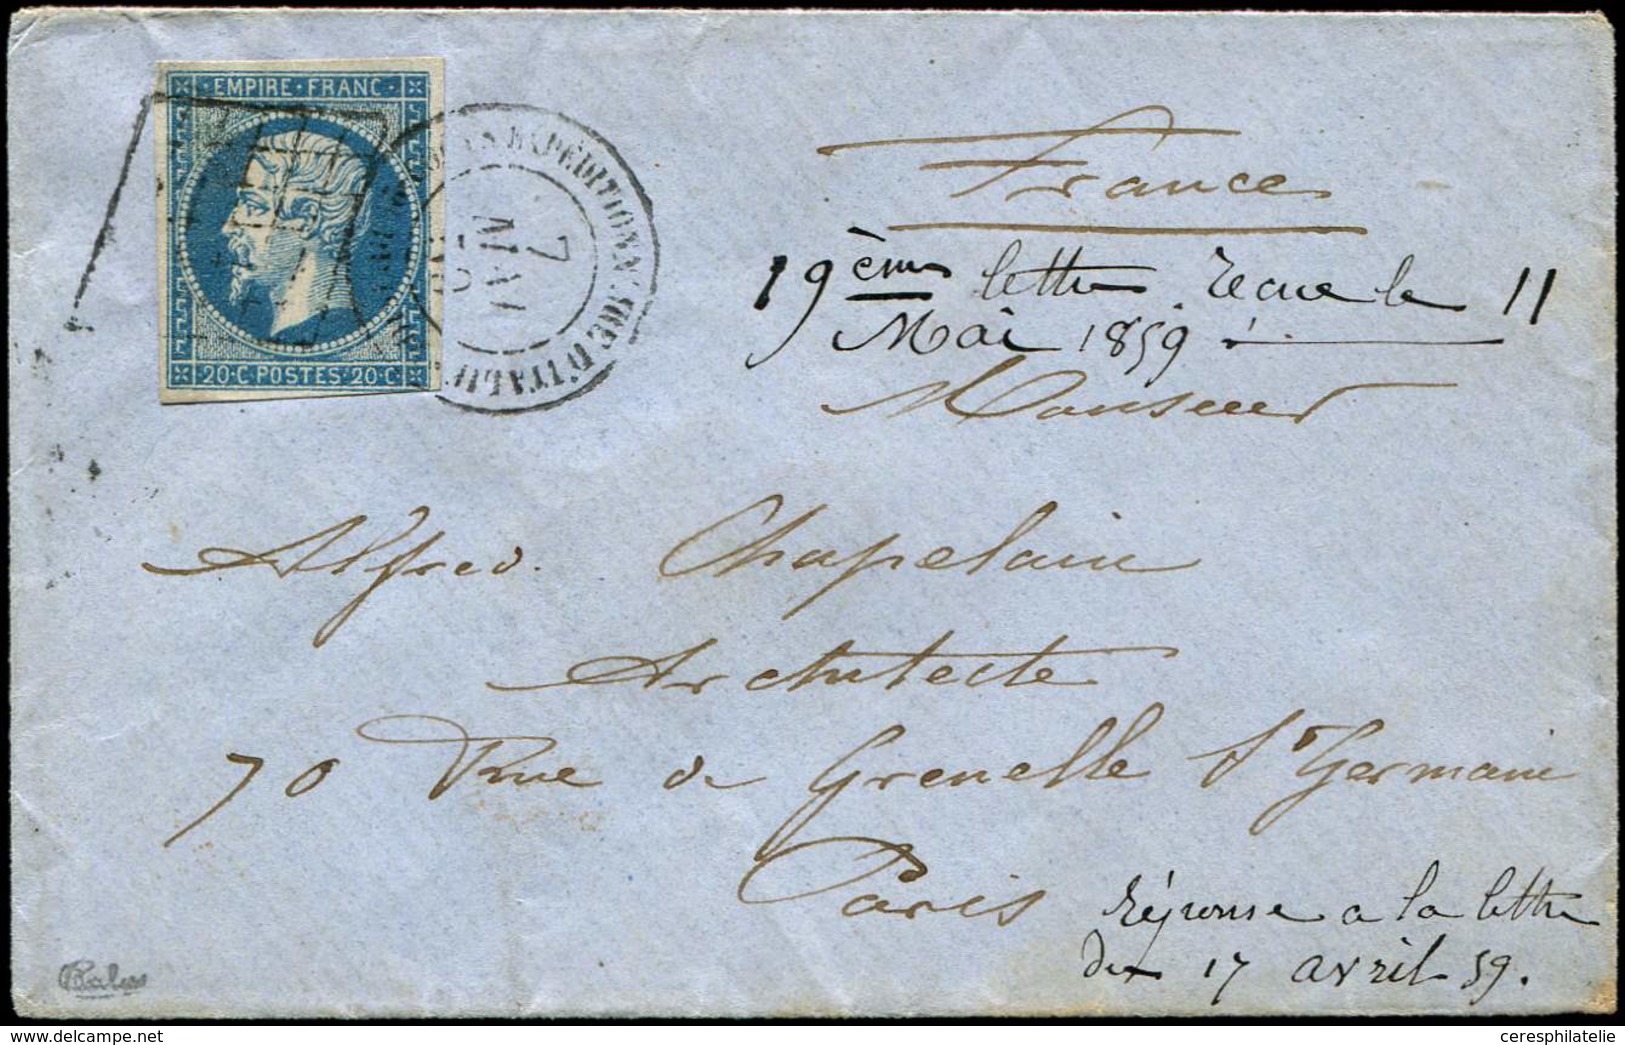 EMPIRE · FRANC ·
20 · C POSTES · 20 · C
EXPÉDITIONN.RE D'ITALIE
7
MAI
France
19ème lettre recue le 11
Mai 1859
Monsieur
Alfred Chapelain
Architecte
70 Rue de Grenelle St Germain
Paris
réponse a la lettre
du 17 avril 59.
ceresphilatelie